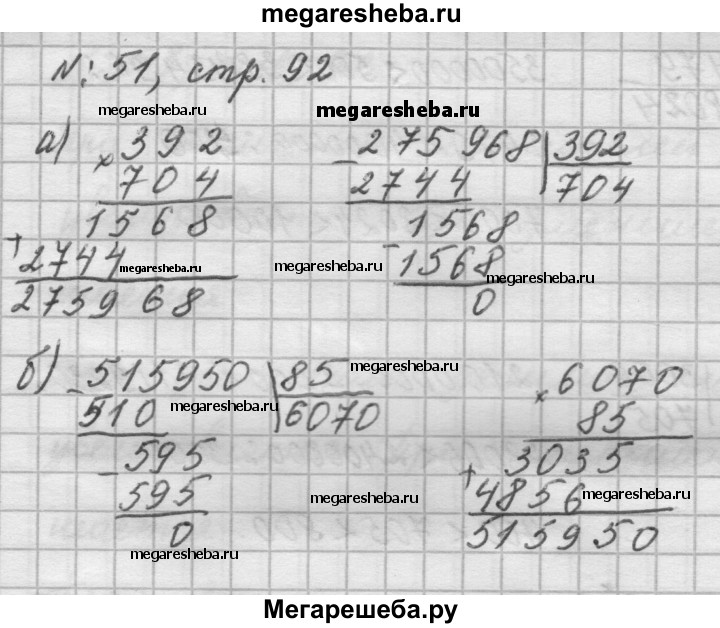 megaresheba.ru
№: 51, стр. 92
megaresheba.ru megaresheba.ru
а) × 392 - 275968 | 392
704 2744 704
1568 1568
+ 2744 megaresheba.ru megaresheba.ru - 1568 megaresheba.ru
275968 0
б) - 515950 | 85 megaresheba.ru × 6070
510 megaresheba.ru 6070 85
- 595 3035
595 megaresheba.ru + 4856 megaresheba.ru
0 515950
megaresheba.ru
Мегарешеба.ру